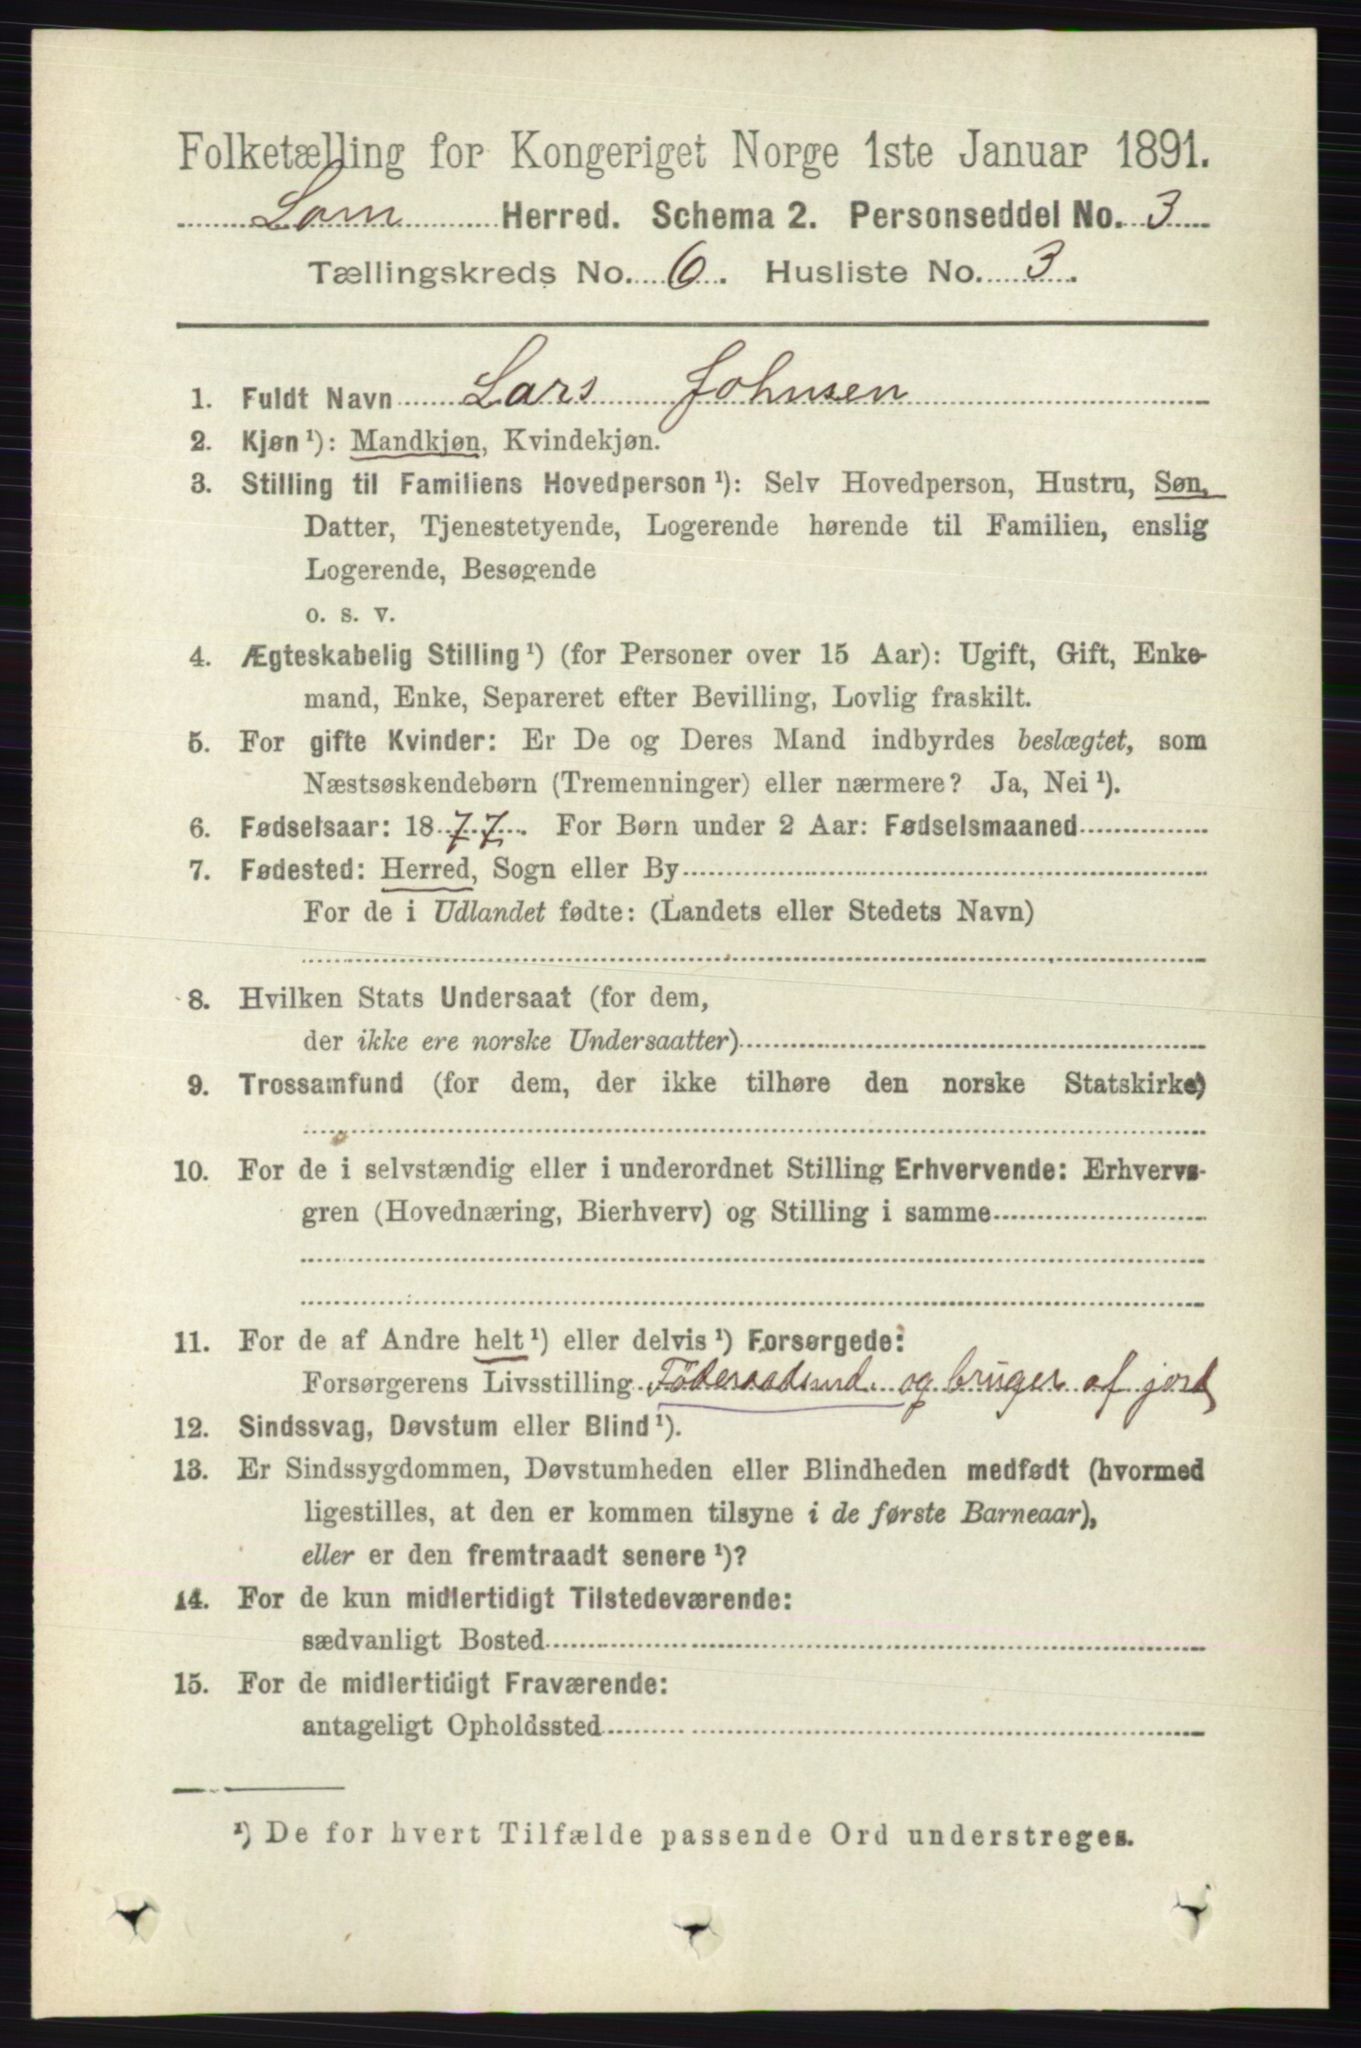 Folketælling for Kongeriget Norge 1ste Januar 1891.
Lom Herred. Schema 2. Personseddel No. 3
Tællingskreds No. 6. Husliste No. 3.
1. Fuldt Navn Lars Johnsen
2. Kjøn ¹): Mandkjøn, Kvindekjøn.
3. Stilling til Familiens Hovedperson ¹): Selv Hovedperson, Hustru, Søn,
Datter, Tjenestetyende, Logerende hørende til Familien, enslig
Logerende, Besøgende
o. s. v.
4. Ægteskabelig Stilling ¹) (for Personer over 15 Aar): Ugift, Gift, Enke-
mand, Enke, Separeret efter Bevilling, Lovlig fraskilt.
5. For gifte Kvinder: Er De og Deres Mand indbyrdes beslægtet, som
Næstsøskendebørn (Tremenninger) eller nærmere? Ja, Nei ¹).
6. Fødselsaar: 1877. For Børn under 2 Aar: Fødselsmaaned
7. Fødested: Herred, Sogn eller By
For de i Udlandet fødte: (Landets eller Stedets Navn)
8. Hvilken Stats Undersaat (for dem,
der ikke ere norske Undersaatter)
9. Trossamfund (for dem, der ikke tilhøre den norske Statskirke)
10. For de i selvstændig eller i underordnet Stilling Erhvervende: Erhvervs-
gren (Hovednæring, Bierhverv) og Stilling i samme
11. For de af Andre helt ¹) eller delvis ¹) Forsørgede:
Forsørgerens Livsstilling og bruger af jord
12. Sindssvag, Døvstum eller Blind ¹).
13. Er Sindssygdommen, Døvstumheden eller Blindheden medfødt (hvormed
ligestilles, at den er kommen tilsyne i de første Barneaar),
eller er den fremtraadt senere ¹)?
14. For de kun midlertidigt Tilstedeværende:
sædvanligt Bosted
15. For de midlertidigt Fraværende:
antageligt Opholdssted
¹) De for hvert Tilfælde passende Ord understreges.